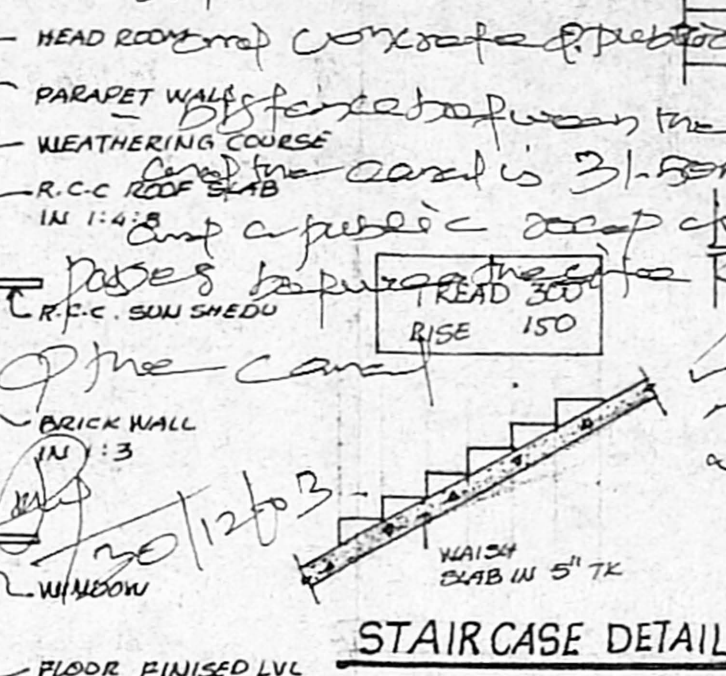 HEAD ROOM
and concrete
PARAPET WALL
Distance between the
WEATHERING COURSE
and the canal is 31.50
R.C.C ROOF SLAB
IN 1:4:8
and a public road
passes between the site
TREAD 300
R.C.C. SUN SHEDU
RISE 150
of the canal
BRICK WALL
IN 1:3
30/12/03
WAISH
SLAB IN 5" TK
WINDOW
STAIR CASE DETAIL
FLOOR FINISED LVL